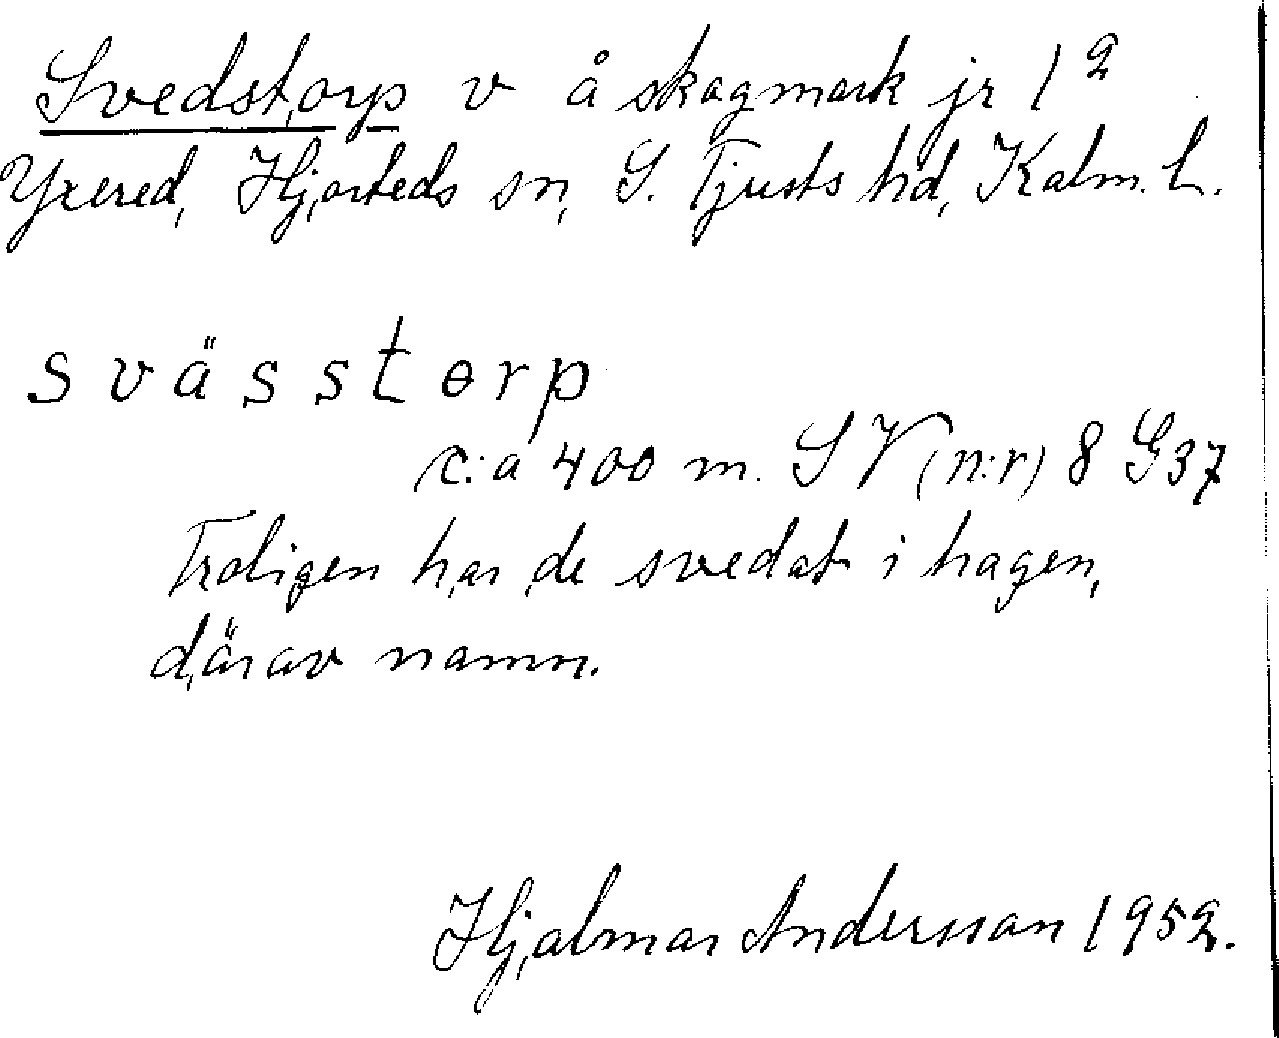 Svedstorp v å skogmark jr 1²
Yxered, Hjorteds sn, S. Tjusts hd, Kalm. L.
svässtɵrp
c:a 400 m. SV (n:r) 8 G37
Troligen har de svedat i hagen,
därav namn.
Hjalmar Andersson 1952.